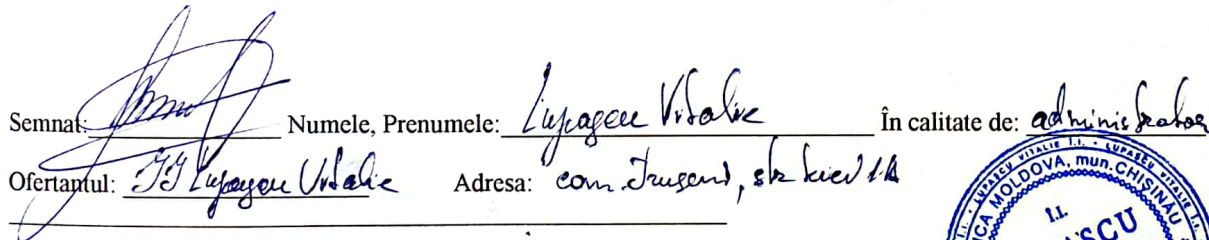 Semnat: Numele, Prenumele: Lupașcu Vitalie În calitate de: administrator
Ofertantul: ÎI Lupașcu Vitalie Adresa: com. Trușeni, str. Kiev 1A
LUPAȘCU VITALIE I.I. • LUPAȘCU VITALIE I.I.
MOLDOVA, mun. CHIȘINĂU
I.I.